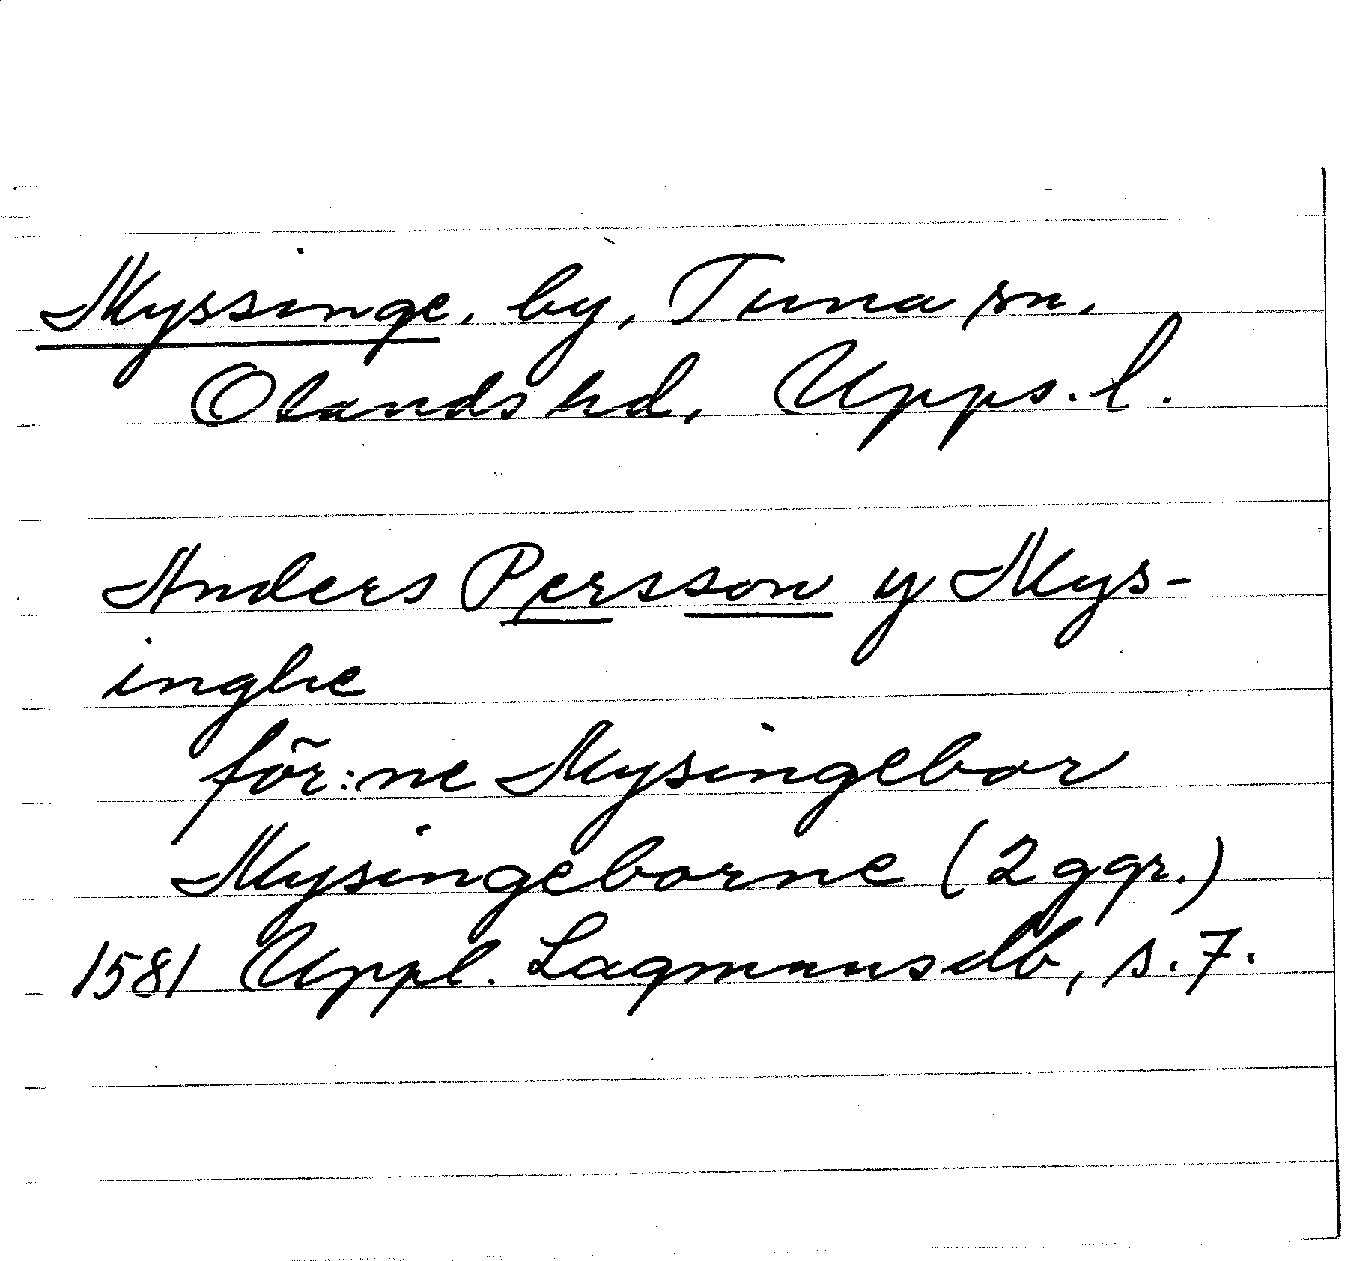 Myssinge, by, Tuna sn,
Olands hd, Upps. l.
Anders Persson y Mys-
inghe
för:ne Mysingebor
Mysingeborne (2 ggr.)
1581 Uppl. Lagmansdb, s. 7.